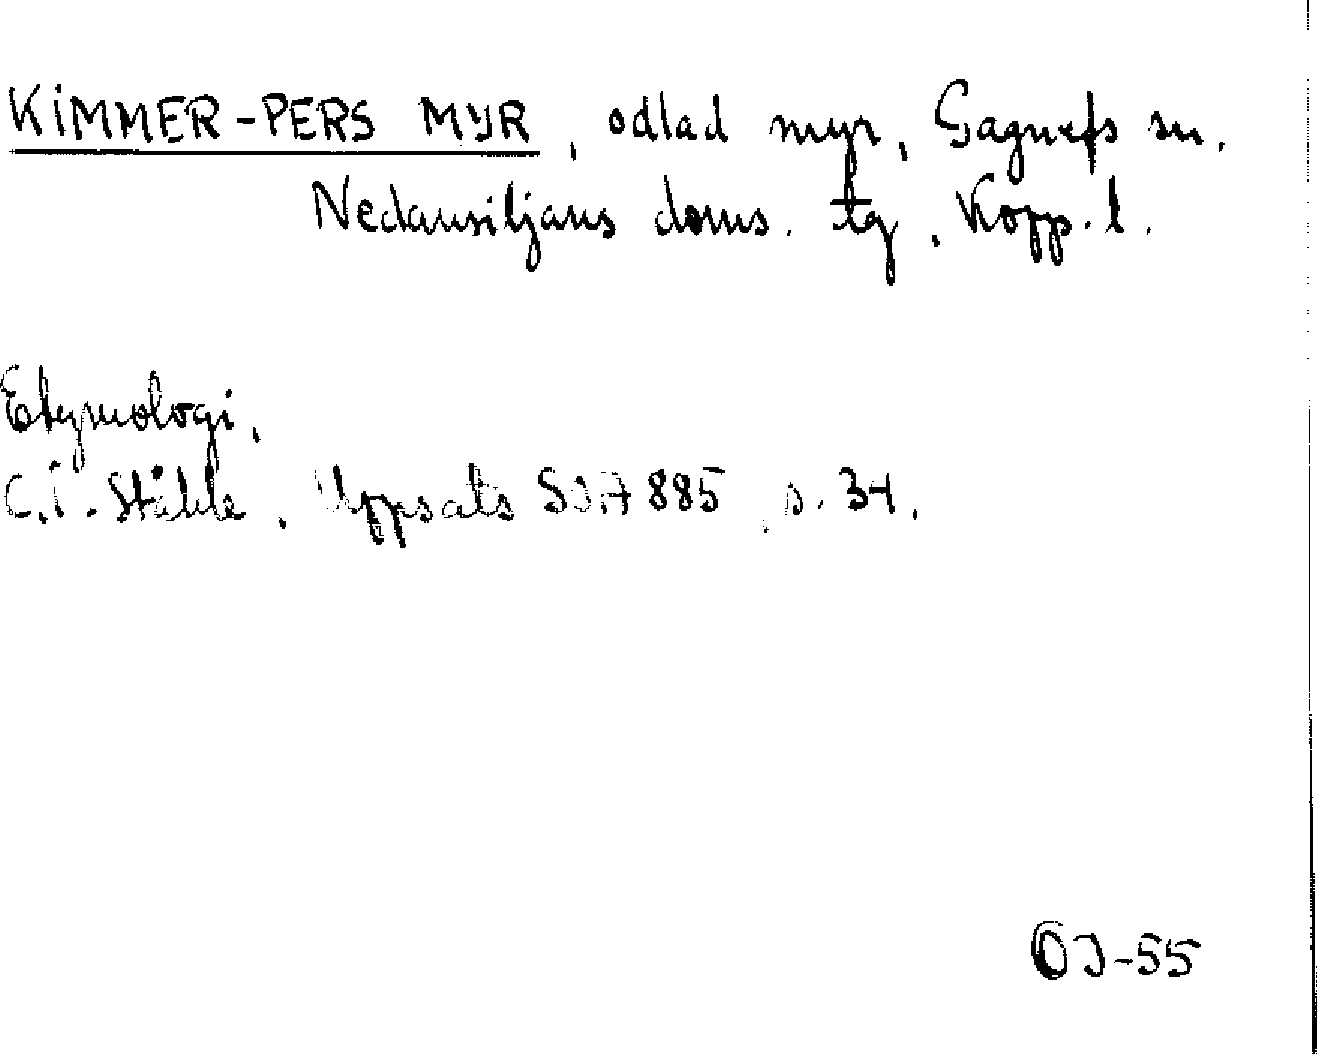 KIMMER-PERS MYR, odlad myr, Gagnefs sn.
Nedansiljans doms. tg, Kopp. l.
Etymologi.
C.I. Ståhle. Uppsats SOA 885, s. 34.
OJ-55